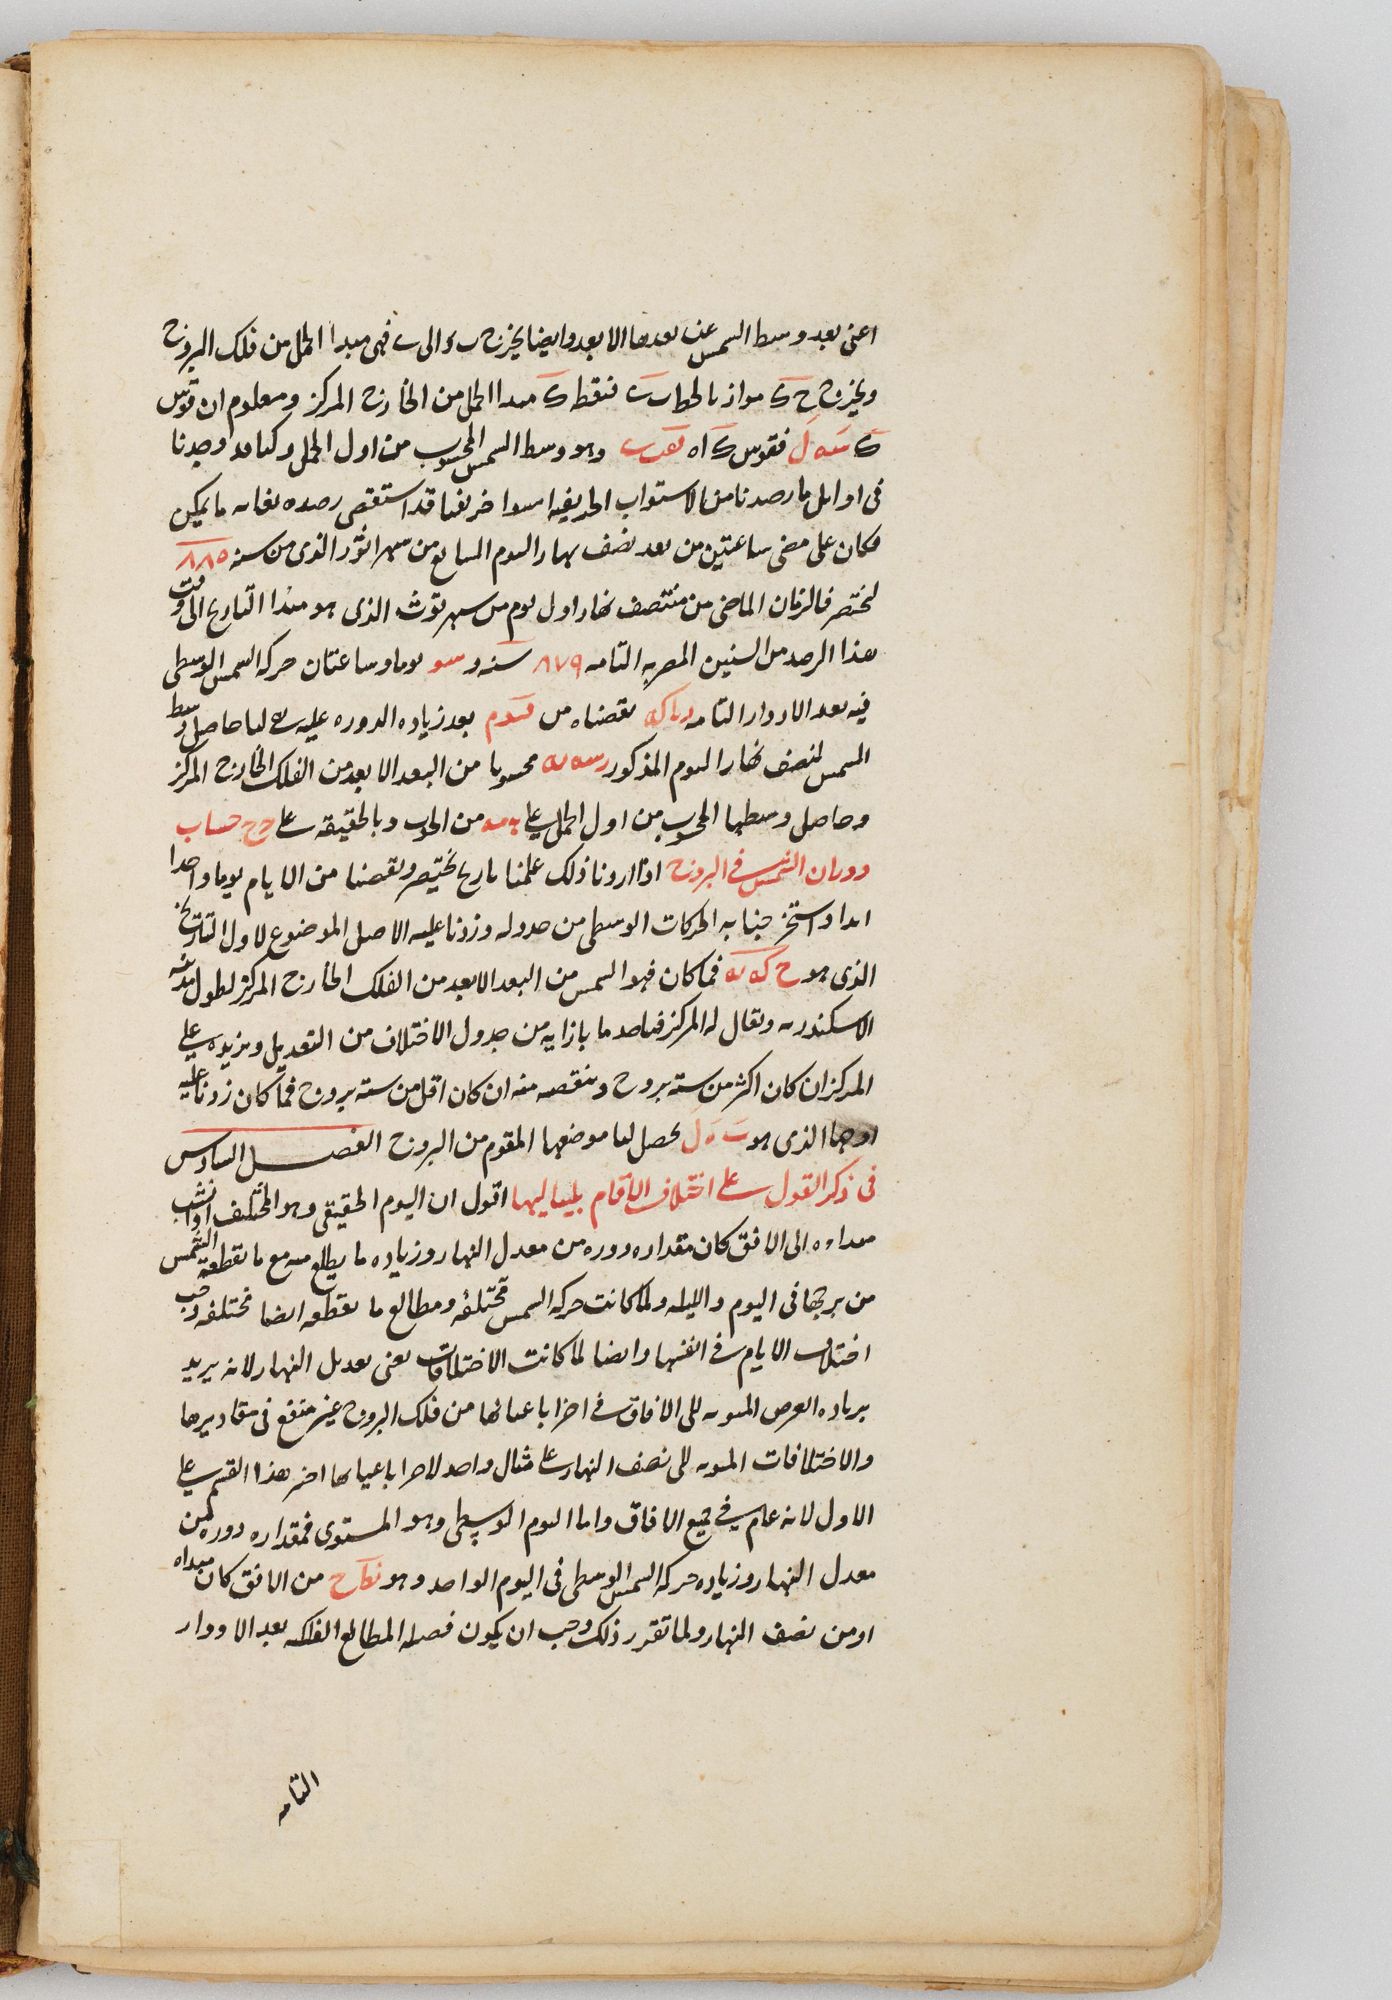 اعنى بعد وسط الشمس عن بعدها الابعد وايضا يخرج ب ى الى فهى مبدا الحمل من فلك البروج
ويخرج ح ك موازيا لخط فنقطة ك مبدا الحمل من الخارج المركز ومعلوم ان قوس
ك سه ل فقوس ك اه وهو وسط الشمس المحسوب من اول الحمل وكنا قد وجدنا
فى اوايل ما رصدنا من الاستواات الخريفية استواء خريفيا قد استقصى رصده بغاية ما يمكن
فكان على مضى ساعتين من بعد نصف نهار اليوم السابع من شهر اثور الذى من سنة ٨٨٥
لبختنصر فالزمان الماضى من منتصف نهار اول يوم من شهر توث الذى هو مبدا التاريخ الى وقت
هذا الرصد من السنين المصرية التامة ٨٧٩ سنة و سو يوما وساعتان حركة الشمس الوسطى
فيه بعد الادوار التامة نقصناه من بعد زيادة الدورة عليه بقى لنا حاصل وسط
الشمس لنصف نهار اليوم المذكور رسه يه محسوبا من البعد الابعد من الفلك الخارج المركز
وحاصل وسطها المحسوب من اول الحمل على من الحوت وبالحقيقة على ح ح حساب
دوران الشمس فى البروج اذا اردنا ذلك علمنا تاريخ بختنصر ونقصنا من الايام يوما واحدا
ابدا واستخرجنا به الحركات الوسطى من جدوله وزدنا عليه الاصل الموضوع لاول التاريخ
الذى هو فما كان فهو الشمس من البعد الابعد من الفلك الخارج المركز لطول مدينة
الاسكندرية ويقال له المركز فناخذ ما بازايه من جدول الاختلاف من التعديل ونزيده على
المركز ان كان اكثر من ستة بروج وننقصه منه ان كان اقل من ستة بروج فما كان زدنا عليه
اوجها الذى هو سه ل يحصل لنا موضعها المقوم من البروج الفصل السادس
فى ذكر القول على اختلاف الايام بلياليها اقول ان اليوم الحقيقى وهو المختلف اذا نسب
مبداوه الى الافق كان مقداره دورة من معدل النهار وزيادة ما يطلع منه مع ما تقطعه الشمس
من برجها فى اليوم والليلة ولما كانت حركة الشمس مختلفة ومطالع ما تقطعه ايضا مختلفة وجب
اختلاف الايام فى انفسها وايضا لما كانت الاختلافات يعنى تعديل النهار لانه يزيد
بزيادة العرض المنسوبة الى الافاق فى اجزا باعيانها من فلك البروج غير متفق فى مقاديرها
والاختلافات المنسوبة الى نصف النهار على مثال واحد لاجزا باعيانها اختر هذا القسم على
الاول لانه عام فى جميع الافاق واما اليوم الوسطى وهو المستوى فمقداره دورة من
معدل النهار وزيادة حركة الشمس الوسطى فى اليوم الواحد وهو نط ح من الافق كان مبداه
او من نصف النهار ولما تقرر ذلك وجب ان يكون فضلة المطالع الفلكية بعد الادوار
التامة